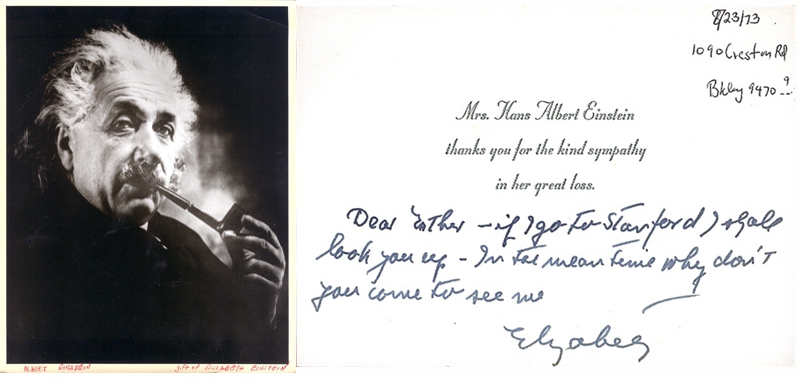 8/23/73
1090 Creston Rd
Bkley 9470
Mrs. Hans Albert Einstein
thanks you for the kind sympathy
in her great loss.
Dear Esther – if I go to Stanford I shall
look you up – In the mean time why don't
you come to see me
Elizabeth
ALBERT EINSTEIN
gift of ELIZABETH EINSTEIN